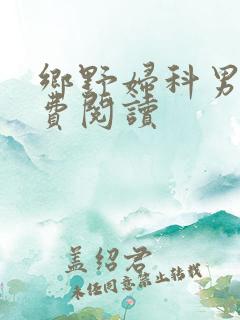 鄉野婦科男
費閱讀
蓋紹君
未经同意禁止转载